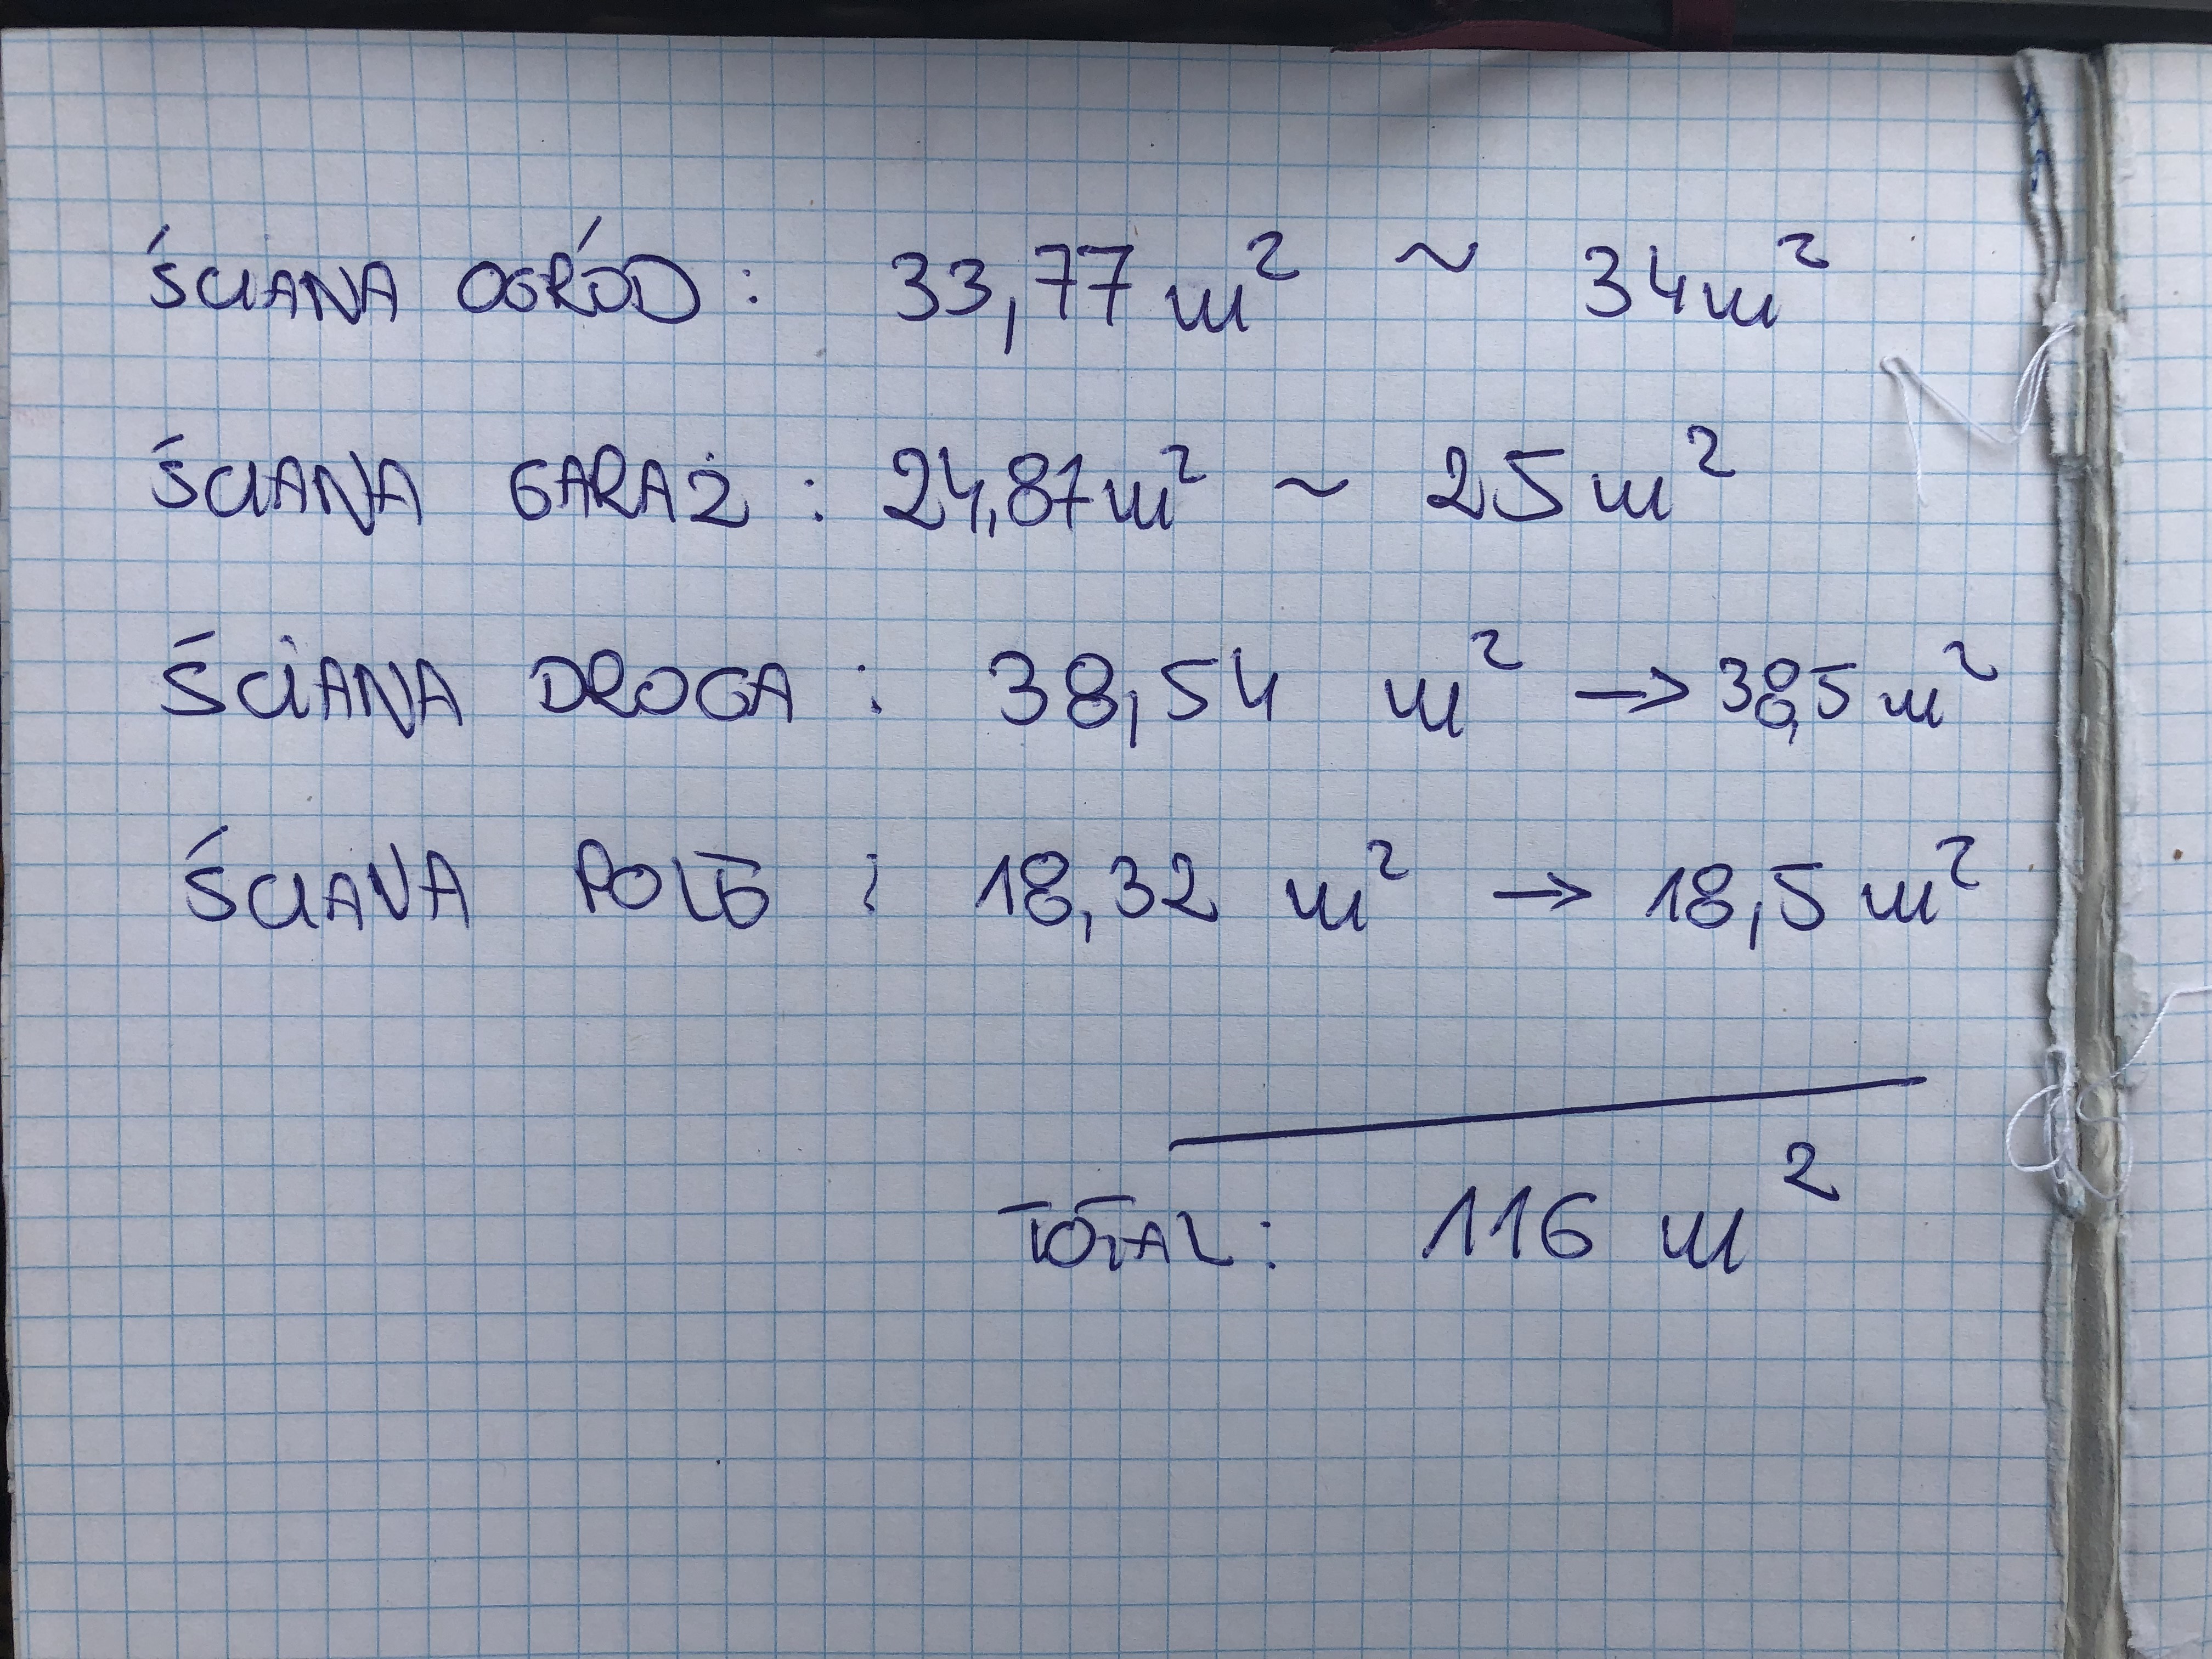 ŚCIANA OGRÓD: 33,77 m² ~ 34m²
ŚCIANA GARAŻ: 24,87m² ~ 25m²
ŚCIANA DROGA: 38,54 m² → 38,5m²
ŚCIANA POLE: 18,32 m² → 18,5m²
TOTAL: 116 m²